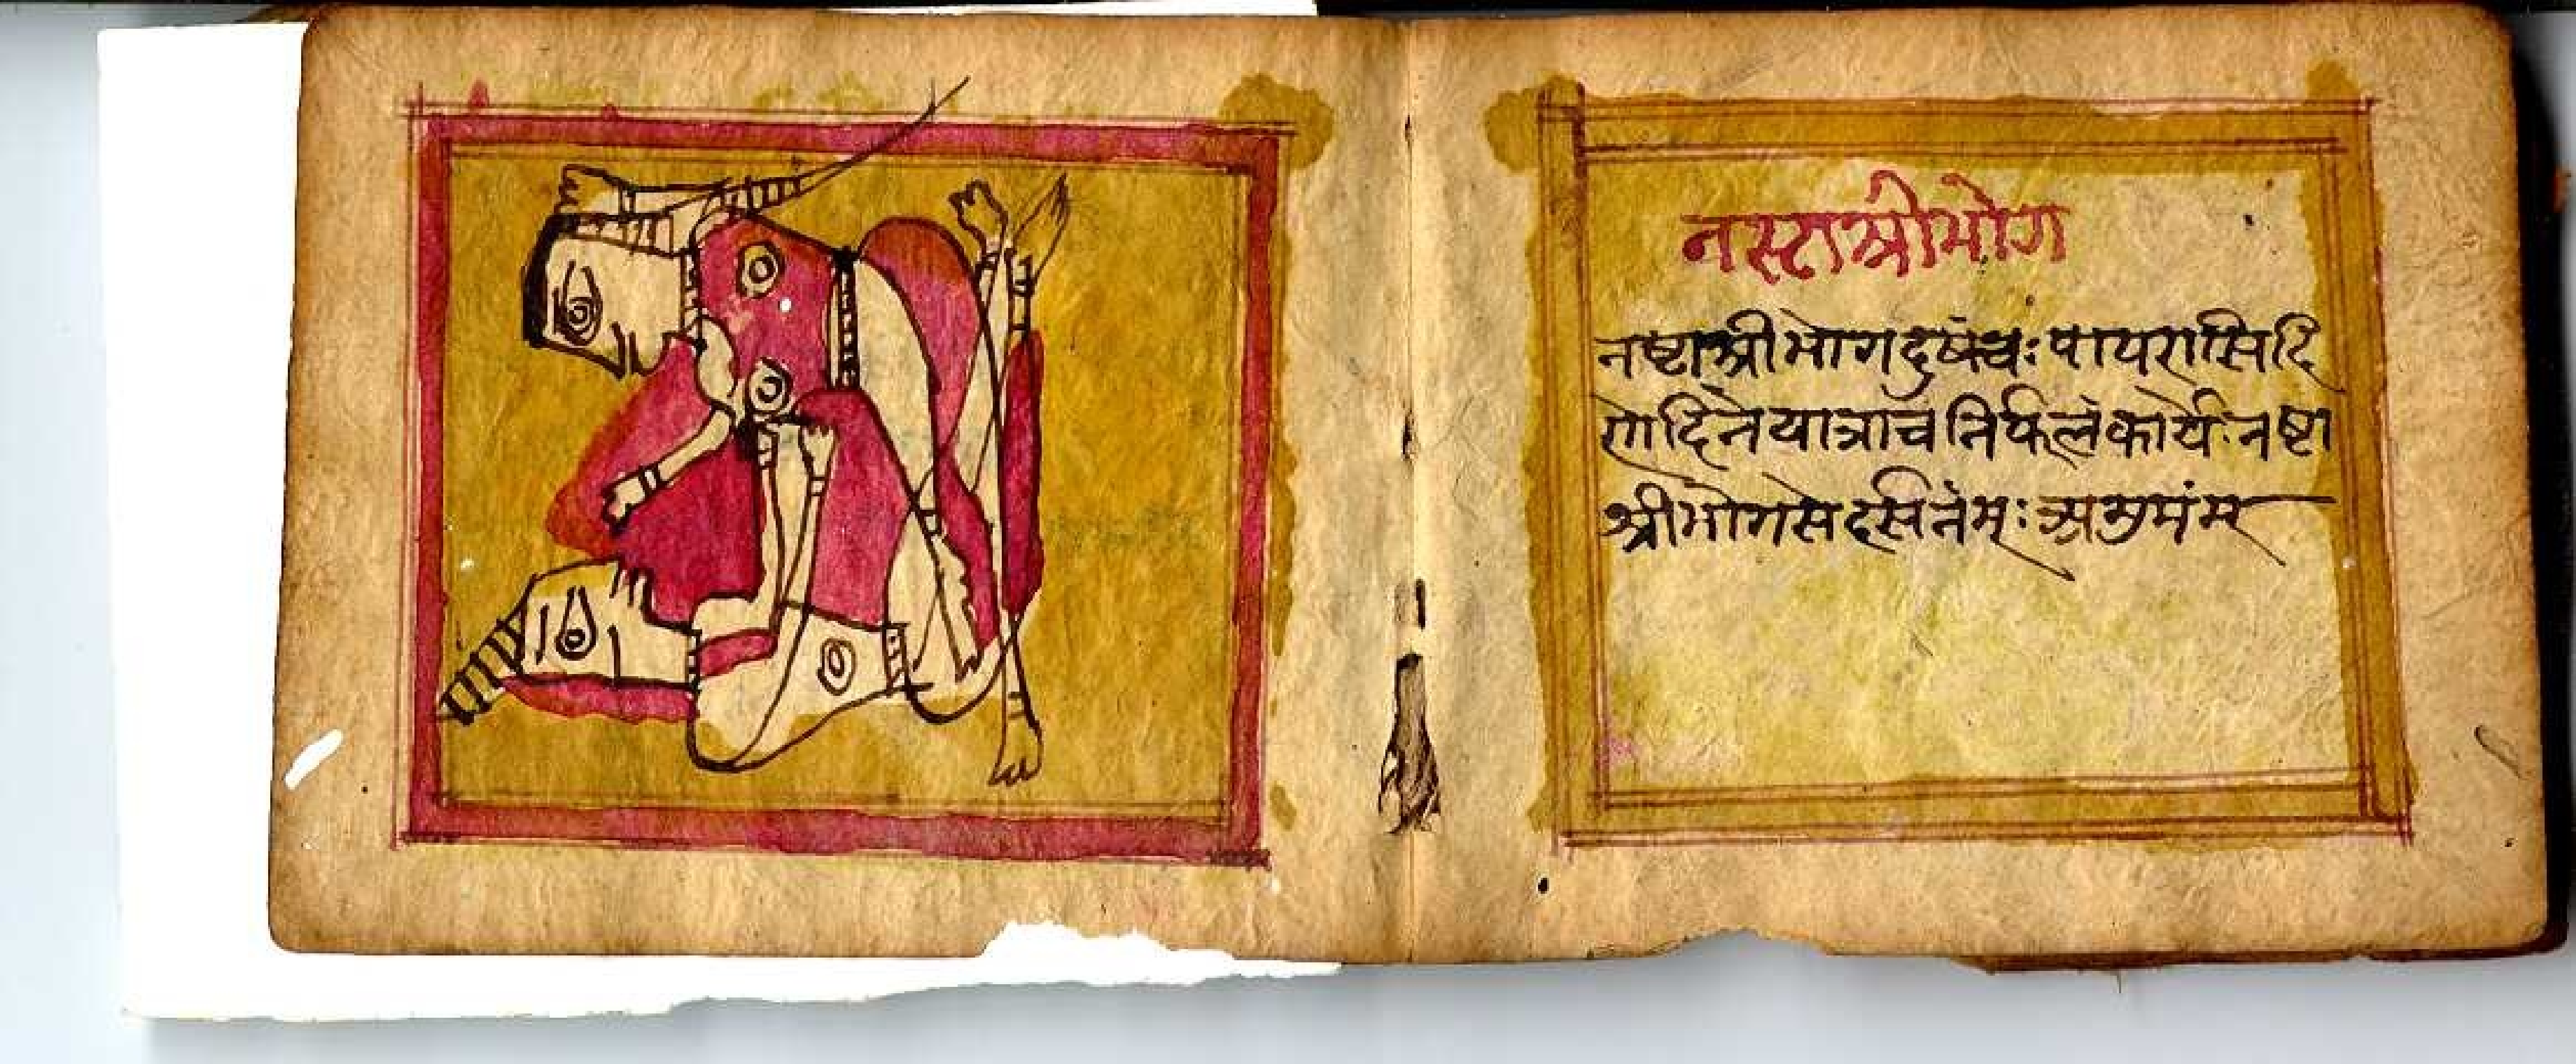 नस्टाश्रीभोग
नष्टाश्रीभोगदुषंचः पापरासिदि
सादिनेयात्राच निर्फलंकार्यः नष्टा
श्रीभोगसेदर्सनंम्ः असुभंम्